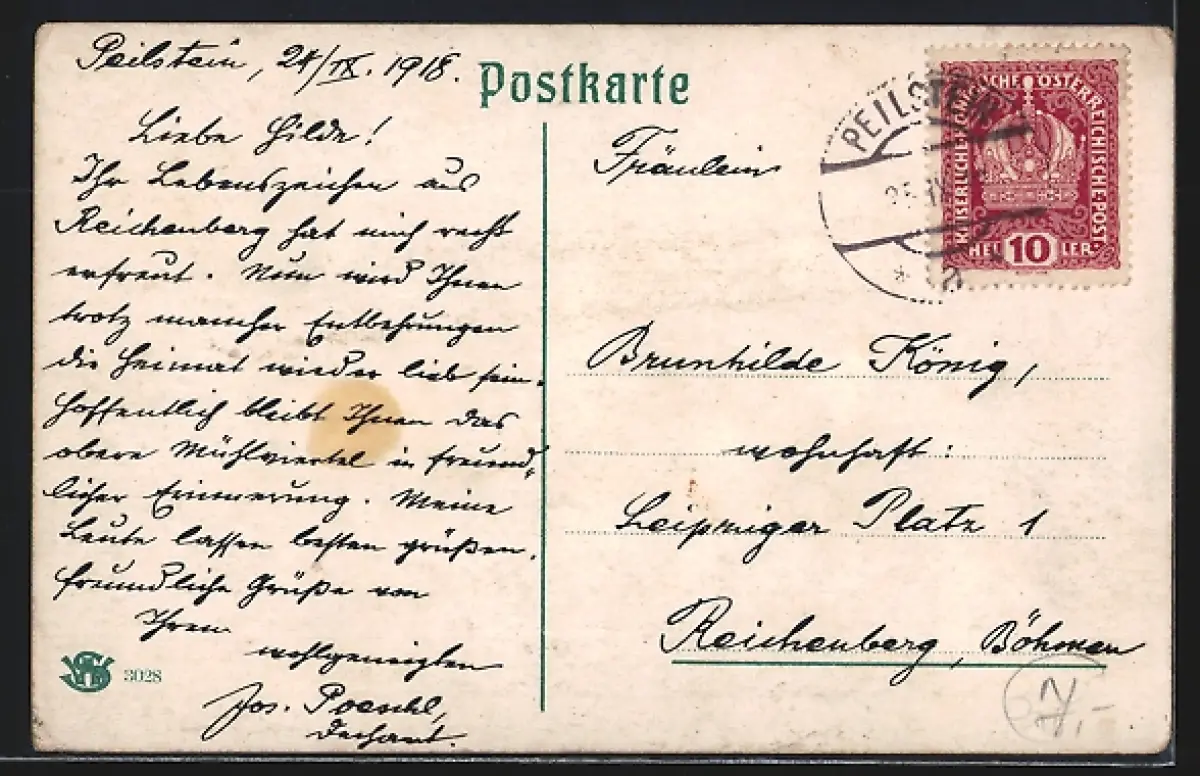 Peilstein, 24/IX. 1918.
Postkarte
Liebe Hilde!
Ihr Lebenszeichen aus
Reichenberg hat mich recht
erfreut. Nun wird Ihnen
trotz mancher Entbehrungen
die Heimat wieder lieb sein.
Hoffentlich bleibt Ihnen das
obere Mühlviertel in freund„
licher Erinnerung. Meine
Leute lassen bestens grüßen.
Freundliche Grüße von
Ihrem
wohlgeneigten
Jos. Poeschl,
Dechant.
3028
Fräulein
Brunhilde König,
wohnhaft:
Leipziger Platz 1
Reichenberg, Böhmen
PEILSTEIN
25 IX
KAISERLICHE KÖNIGLICHE ÖSTERREICHISCHE POST
HELLER
10
7,-